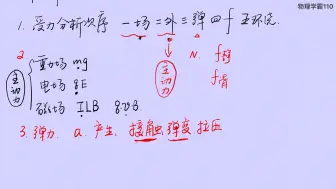 物理学霸110
1. 受力分析次序 一场二外三弹四f 五环境.
N. f静
f滑
主动力
2.
主动力
重力场 mg
电场 qE
磁场 ILB qvB.
3. 弹力. a. 产生. 接触 弹变 拉压